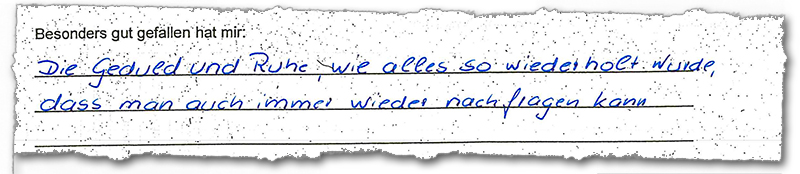 Besonders gut gefallen hat mir:
Die Geduld und Ruhe, wie alles so wiederholt wurde,
dass man auch immer wieder nachfragen kann